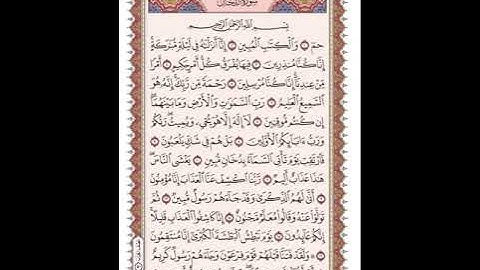 سورة الدخان
بسم الله الرحمن الرحيم
حمٓ ۝ وَٱلْكِتَٰبِ ٱلْمُبِينِ ۝ إِنَّآ أَنزَلْنَٰهُ فِى لَيْلَةٍ مُّبَٰرَكَةٍ
إِنَّا كُنَّا مُنذِرِينَ ۝ فِيهَا يُفْرَقُ كُلُّ أَمْرٍ حَكِيمٍ ۝ أَمْرًا
مِّنْ عِندِنَآ إِنَّا كُنَّا مُرْسِلِينَ ۝ رَحْمَةً مِّن رَّبِّكَ إِنَّهُۥ هُوَ
ٱلسَّمِيعُ ٱلْعَلِيمُ ۝ رَبِّ ٱلسَّمَٰوَٰتِ وَٱلْأَرْضِ وَمَا بَيْنَهُمَآ
إِن كُنتُم مُّوقِنِينَ ۝ لَآ إِلَٰهَ إِلَّا هُوَ يُحْىِۦ وَيُمِيتُ رَبُّكُمْ
وَرَبُّ ءَابَآئِكُمُ ٱلْأَوَّلِينَ ۝ بَلْ هُمْ فِى شَكٍّ يَلْعَبُونَ ۝
فَٱرْتَقِبْ يَوْمَ تَأْتِى ٱلسَّمَآءُ بِدُخَانٍ مُّبِينٍ ۝ يَغْشَى ٱلنَّاسَ
هَٰذَا عَذَابٌ أَلِيمٌ ۝ رَّبَّنَا ٱكْشِفْ عَنَّا ٱلْعَذَابَ إِنَّا مُؤْمِنُونَ ۝
أَنَّىٰ لَهُمُ ٱلذِّكْرَىٰ وَقَدْ جَآءَهُمْ رَسُولٌ مُّبِينٌ ۝ ثُمَّ
تَوَلَّوْا۟ عَنْهُ وَقَالُوا۟ مُعَلَّمٌ مَّجْنُونٌ ۝ إِنَّا كَاشِفُوا۟ ٱلْعَذَابِ قَلِيلًا
إِنَّكُمْ عَآئِدُونَ ۝ يَوْمَ نَبْطِشُ ٱلْبَطْشَةَ ٱلْكُبْرَىٰٓ إِنَّا مُنتَقِمُونَ
۝ وَلَقَدْ فَتَنَّا قَبْلَهُمْ قَوْمَ فِرْعَوْنَ وَجَآءَهُمْ رَسُولٌ كَرِيمٌ